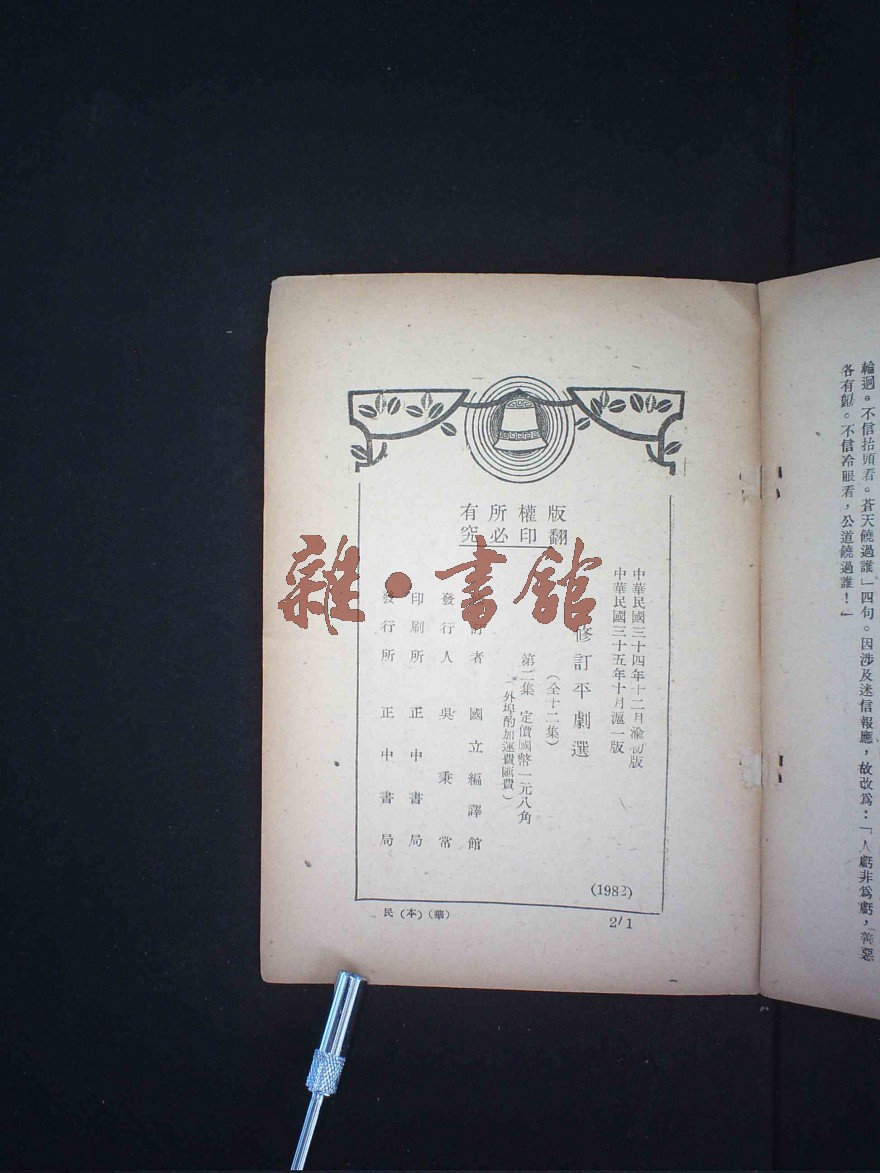 輪迴。不信抬頭看。蒼天饒過誰」四句。因涉及迷信報應,故改爲:「人虧非爲虧,善惡
各有勸。不信冷眼看,公道饒過誰!」
版權所有
翻印必究
中華民國三十四年十二月渝初版
中華民國三十五年十月滬一版
修訂平劇選
(全十二集)
第二集 定價國幣一元八角
(外埠酌加運費匯費)
訂者 國立編譯館
發行人 吳秉常
印刷所 正中書局
發行所 正中書局
(1982)
民(本)(華)
2/1
雜·書館